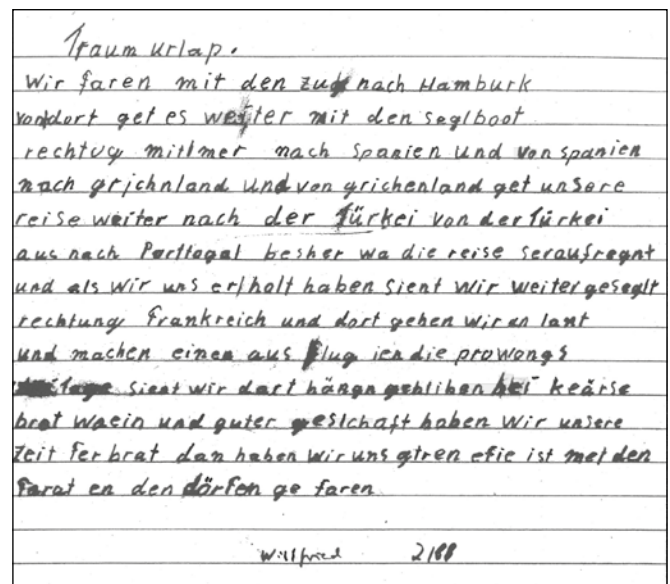 Traum urlap.
Wir faren mit den zug nach Hamburk
von dort get es weiter mit den seglboot
rechtug mitlmer nach spanien und von spanien
nach grichnland und von grichenland get unsere
reise weiter nach der Türkei von der Türkei
aus nach Porttogal besher wa die reise seraufregnt
und als wir uns erholt haben sient wir weiter geseglt
rechtung Frankreich und dort gehen wir an lant
und machen einen aus flug ien die prowongs
sient wir dort hängn gebliben bei keärse
brot waein und guter geslchaft haben wir unsere
zeit ferbrat dan haben wir uns ist met den
farat en den dörfen ge faren
Willfried 2/88